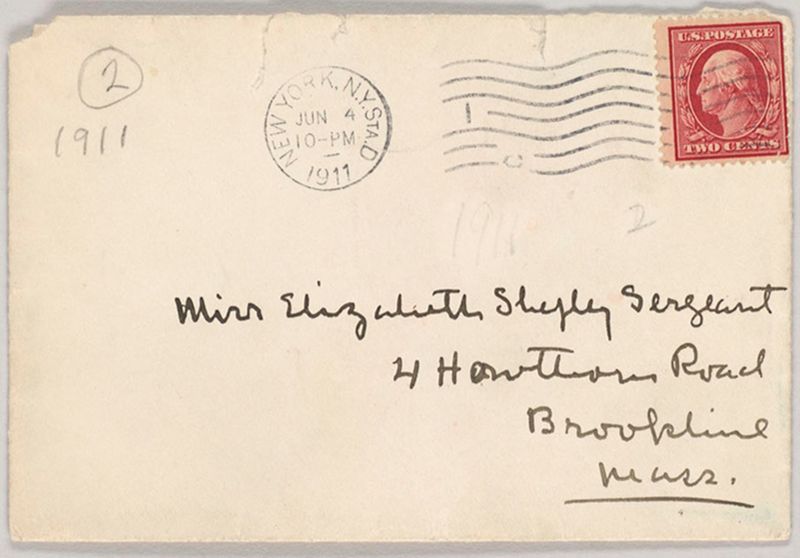 2
1911
NEW YORK, N.Y. STA. D
JUN 4
10-PM
1911
U.S. POSTAGE
TWO CENTS
1911
2
Miss Elizabeth Shepley Sergeant
4 Hawthorn Road
Brookline
Mass.